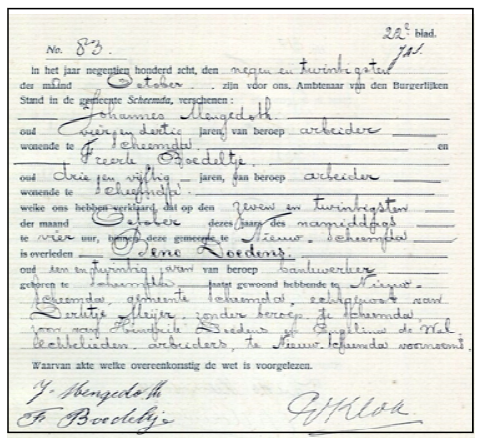 22e blad.
No. 83.
In het jaar negentien honderd acht, den negen en twintigsten
der maand October . zijn voor ons, Ambtenaar van den Burgerlijken
Stand in de gemeente Scheemda, verschenen:
Johannes Mengedoth.
oud vier en dertig jaren, van beroep arbeider
wonende te Scheemda. en
Freerk Boedeltje.
oud drie en vijftig jaren, van beroep arbeider
wonende te Scheemda.
welke ons hebben verklaard, dat op den zeven en twintigsten
der maand October dezes jaars des namiddags
te vier uur, binnen deze gemeente te Nieuw-Scheemda
is overleden Beno Doedens.
oud een en twintig jaren van beroep
geboren te Scheemda laatst gewoond hebbende te Nieuw-
Scheemda, gemeente Scheemda, echtgenoot van
Derktje Meijer, zonder beroep, te Scheemda,
zoon van Hindrik Doedens en Engelina de Wal
echtelieden, arbeiders, te Nieuw-Scheemda voornoemd.
Waarvan akte welke overeenkomstig de wet is voorgelezen.
J. Mengedoth
F. Boedeltje